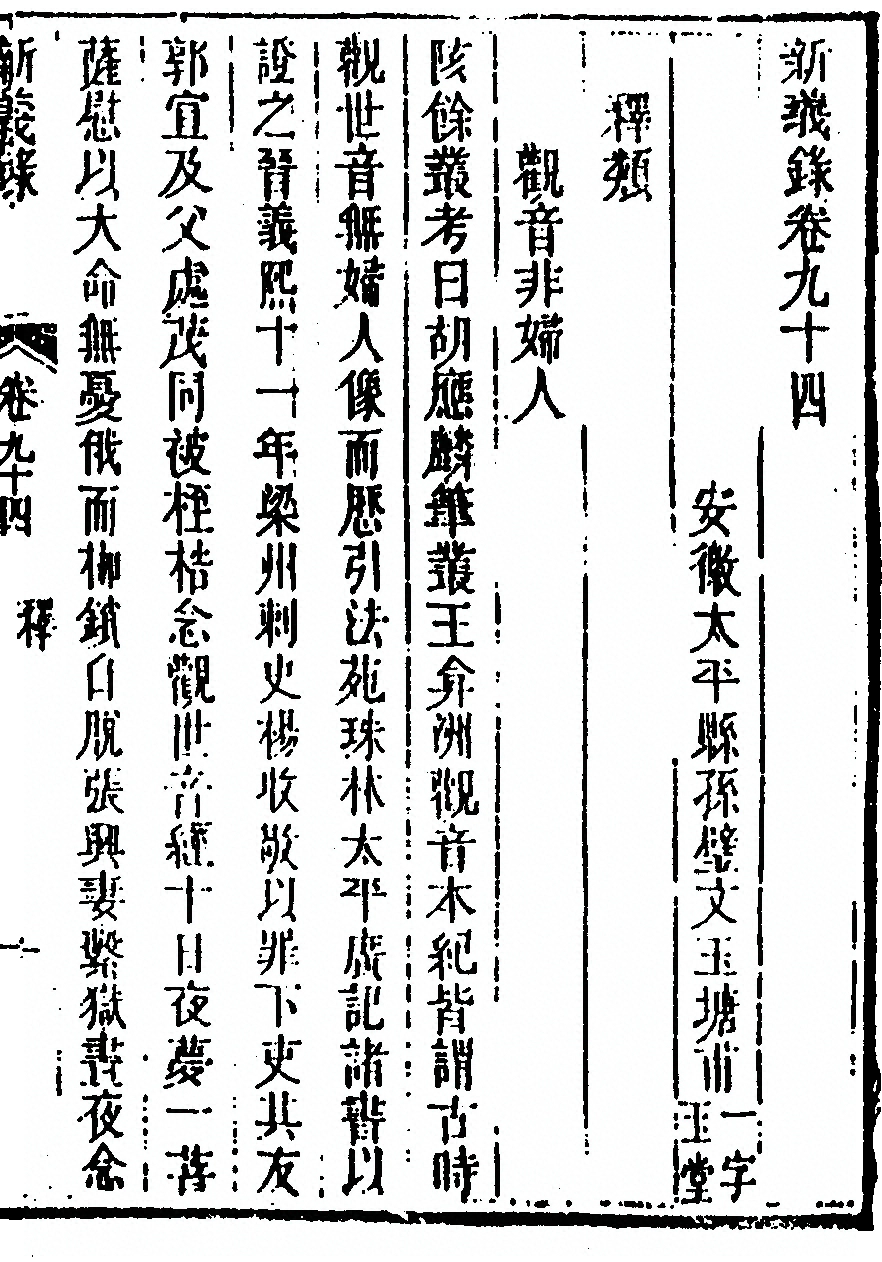 新義錄卷九十四
安徽太平縣孫璧文玉塘甫一字玉堂
釋類
觀音非婦人
陔餘叢考曰胡應麟筆叢王弇洲觀音本紀皆謂古時
觀世音無婦人像而歷引法苑珠林太平廣記諸書以
證之晉義熙十一年梁州刺史楊收敬以罪下吏其友
郭宜及父處茂同被桎梏念觀世音經十日夜夢一菩
薩慰以大命無憂俄而枷鎖自脫張興妻繫獄晝夜念
新義錄 卷九十四 釋 一